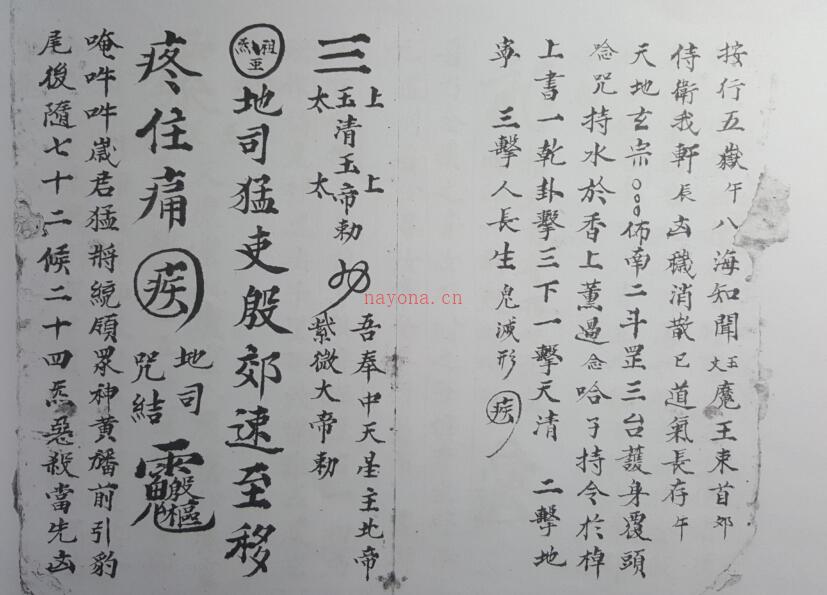 按行五嶽午八海知聞魔王束首卯
侍衛我軒辰凶穢消散巳道氣長存午
天地玄宗佈南二斗罡三台護身覆頭
念咒持水於香上薰過念哈子持令於棹
上書一乾卦擊三下一擊天清 二擊地
寧 三擊人長生鬼滅形 疾
三
上 上
玉清玉帝勅
太 太
吾奉中天星主北帝
紫微大帝勅
祖炁
地司猛吏殷郊速至移
疼住痛 疾
地司
咒結
唵吽吽嵗君猛將統領眾神黃旛前引豹
尾後隨七十二候二十四炁惡殺當先凶
nayona.cn